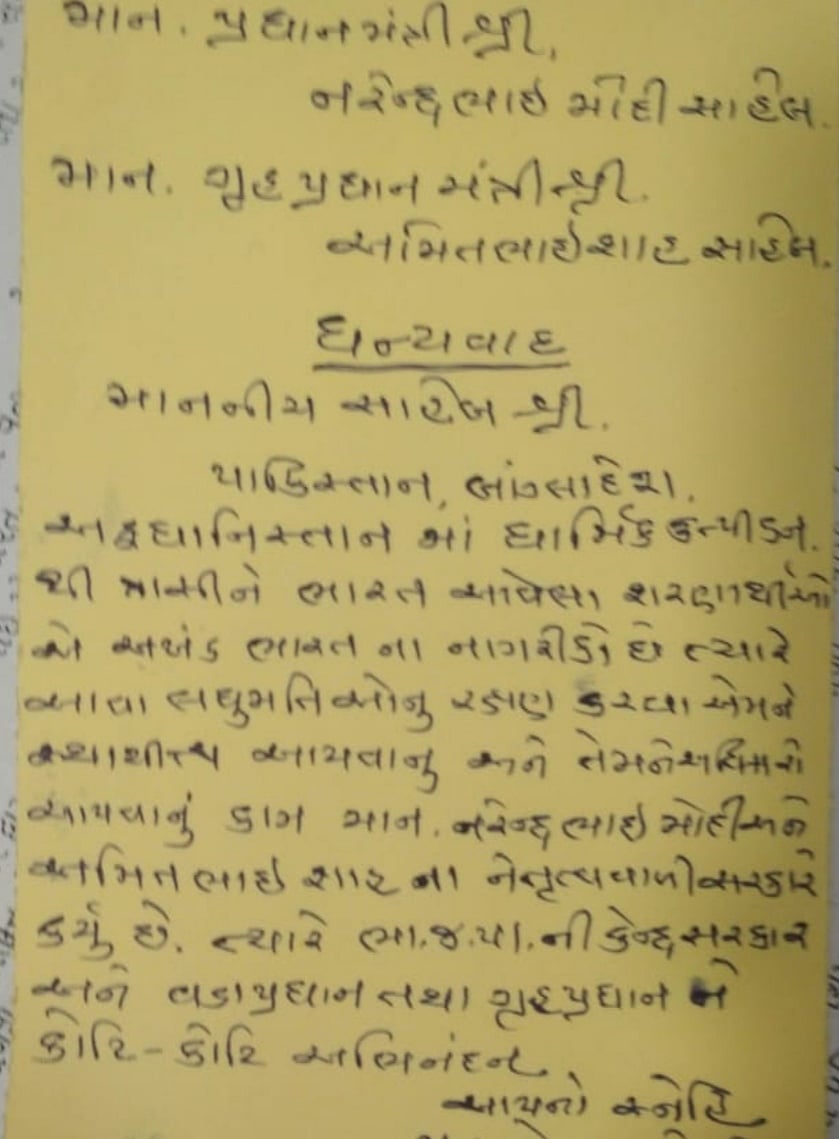 માન. પ્રધાનમંત્રીશ્રી,
નરેન્દ્રભાઇ મોદી સાહેબ.
માન. ગૃહપ્રધાન મંત્રીશ્રી.
અમિતભાઇ શાહ સાહેબ.
ધન્યવાદ
માનનીય સાહેબ શ્રી.
પાકિસ્તાન, બાંગ્લાદેશ.
અફઘાનિસ્તાન માં ધાર્મિક ઉત્પીડન.
થી ત્રાસીને ભારત આવેલા શરણાર્થીઓ
એ અખંડ ભારત ના નાગરીકો છે ત્યારે
આવા લઘુમતિઓનુ રક્ષણ કરવા એમને
આપવાનુ અને તેમને
આપવાનું કામ માન. નરેન્દ્રભાઇ મોદી અને
અમિતભાઇ શાહ ના નેતૃત્વવાળી સરકારે
કર્યું છે. ત્યારે ભા.જ.પા.ની કેન્દ્ર સરકાર
અને વડાપ્રધાન તથા ગૃહપ્રધાન ને
કોટિ-કોટિ અભિનંદન.
આપનો સ્નેહિ